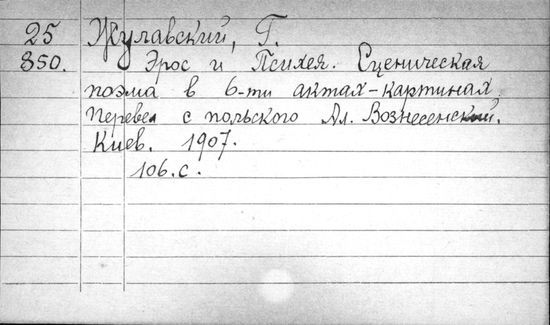 25 Жулавский, Г.
850. Эрос и Психея. Сценическая
поэма в 6-ти актах-картинах.
Перевел с польского Ал. Вознесенский.
Киев. 1907.
106.с.